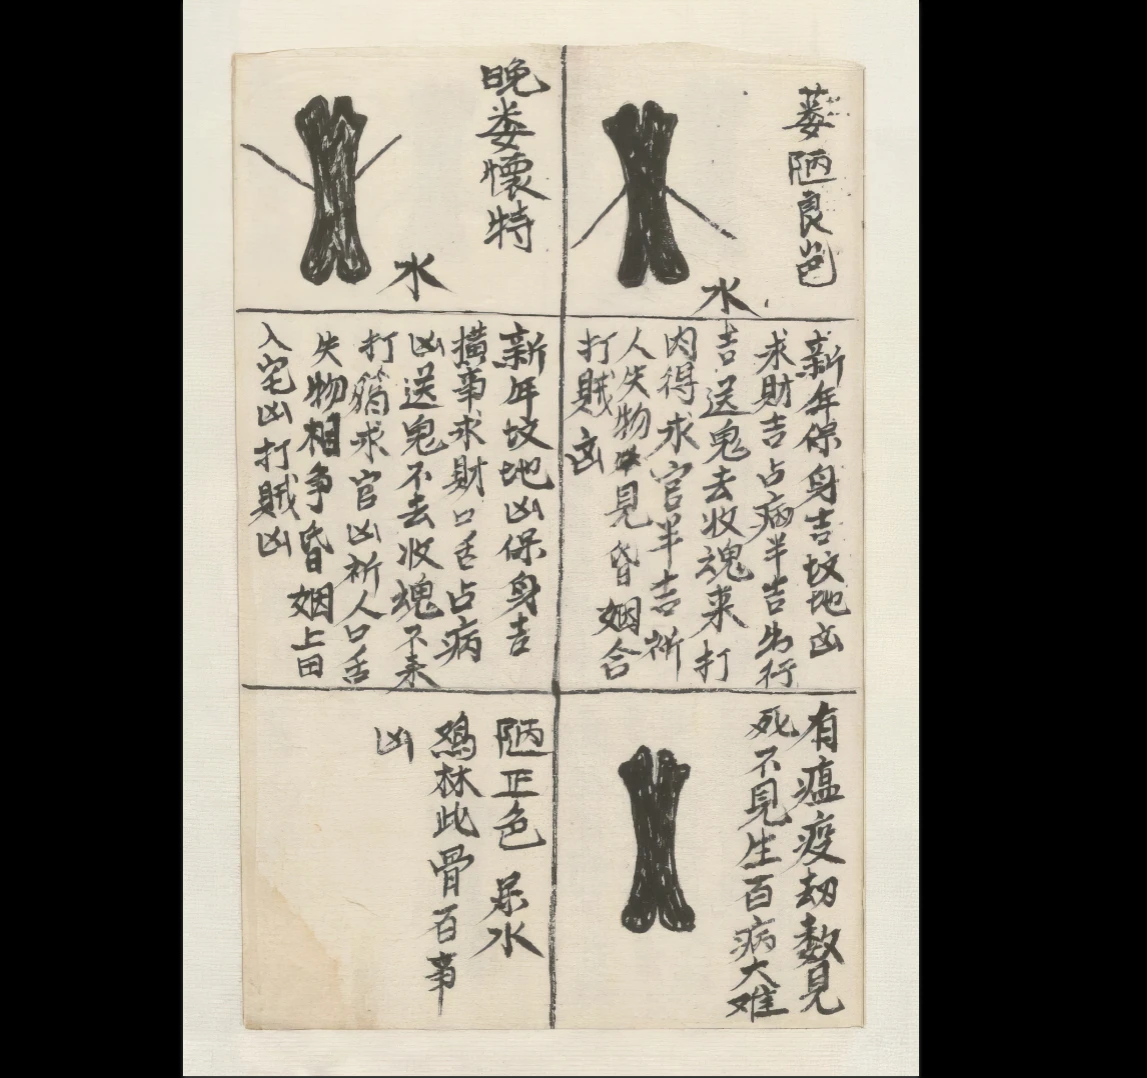 蒌陋良邑
水
新年保身吉坟地凶
求财吉占病半吉出行
吉送鬼去收魂来打
内得求官半吉祈
人失物见昏姻合
打贼凶
有瘟疫劫数见
死不见生百病大难
晚娄懷特
水
新年坟地凶保身吉
横事求财口舌占病
凶送鬼不去收魂不来
打猎求官凶祈人口舌
失物相争昏姻上田
入宅凶打贼凶
陋正色 呆水
鸡林此骨百事
凶